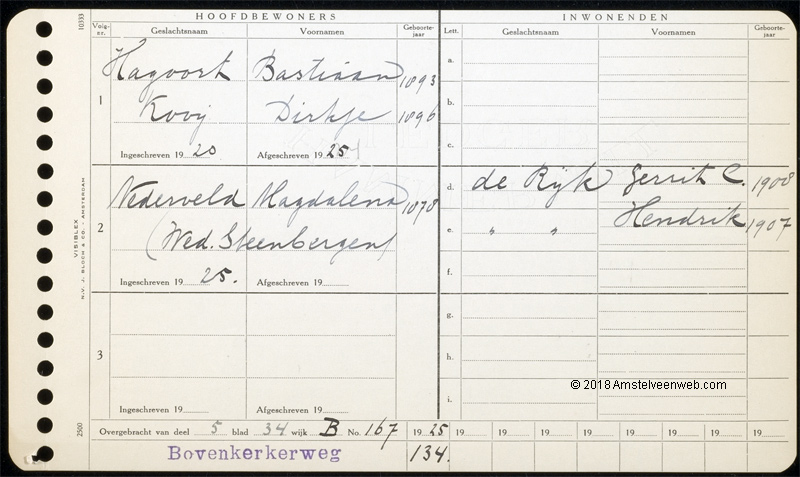 HOOFDBEWONERS
INWONENDEN
Volg-nr. Geslachtsnaam Voornamen Geboorte-jaar
Lett. Geslachtsnaam Voornamen Geboorte-jaar
1
Hagoort Bastiaan 1893
Kooij Dirkje 1896
Ingeschreven 19 20 Afgeschreven 19 25
a.
b.
c.
2
Nederveld Magdalena 1878
(Wed. Steenbergen)
Ingeschreven 19 25. Afgeschreven 19
d. de Rijk Gerrit C. 1908
e. " " Hendrik 1907
f.
3
Ingeschreven 19 Afgeschreven 19
g.
h.
i.
© 2018 Amstelveenweb.com
Overgebracht van deel 5 blad 34 wijk B No. 167 19 25 19 19 19 19 19 19 19 19
Bovenkerkerweg 134.
10333
VISIBLEX
N.V. J. BLOCH & CO. - AMSTERDAM
2500